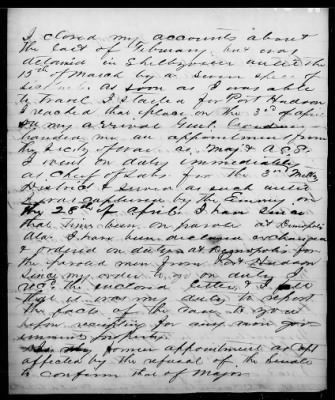 I closed my accounts about
the last of February but was
detained in Shelbyville until the
15th of March by a severe spell of
as soon as I was able
to travel I started for Port Hudson
I reached that place on the 3rd of April
on my arrival Genl Gardner
handed me an appointment from
the Secty of War as Maj & A.C.S.
I went on duty immediately
as Chief of Subs for the 3rd Milty
District & served as such until
I was captured by the Enemy on
the 28th of April. I have since
that time been on parole at Demopolis
Ala I have been declared exchanged
& ordered on duty at
the paroled men from Port Hudson
Since my order to go on duty I
recd the enclosed letter & I felt
that it was my duty to report
the facts of the case to you
before receipting for any more gov
ernment property.
former appointment as Capt
affected by the refusal of the Senate
to confirm that of Major